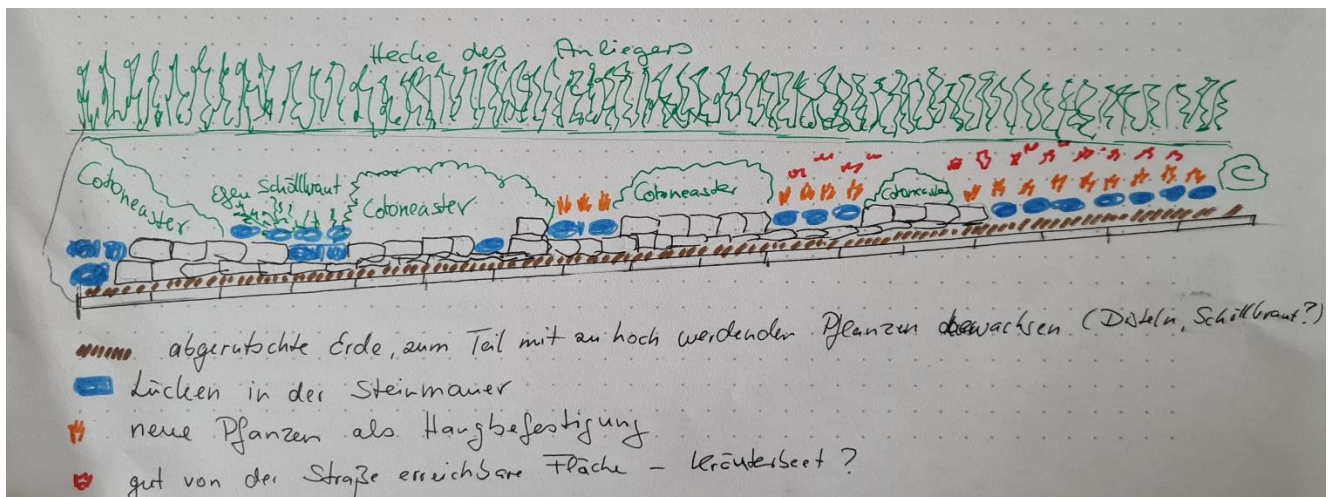 Hecke des Anliegers
Cotoneaster
Efeu Schöllkraut
Cotoneaster
Cotoneaster
Cotoneaster
C
abgerutschte Erde, zum Teil mit zu hoch werdenden Pflanzen bewachsen (Disteln, Schöllkraut?)
Lücken in der Steinmauer
neue Pflanzen als Hangbefestigung
gut von der Straße erreichbare Fläche – Kräuterbeet?